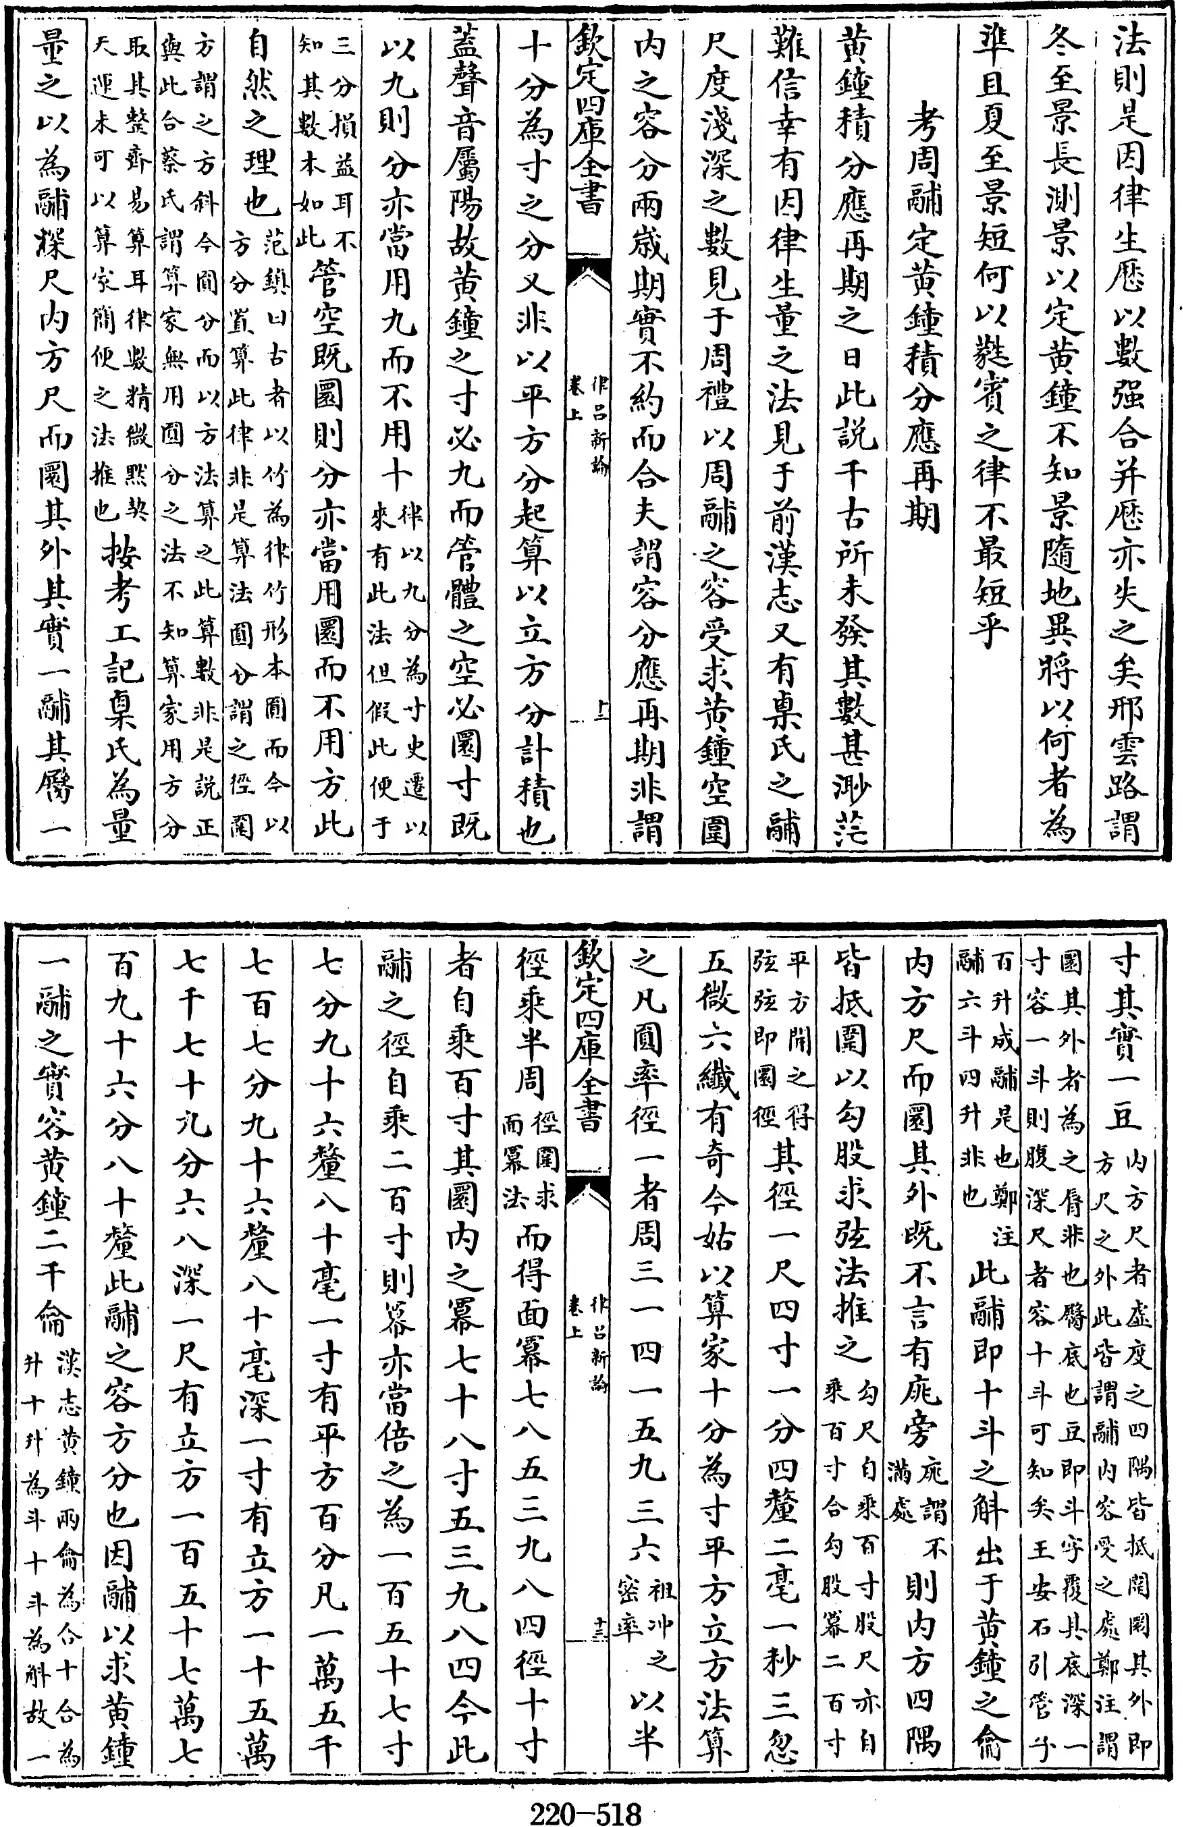 法則是因律生厯以數强合并厯亦失之矣邢雲路謂
冬至景長測景以定黄鐘不知景隨地異將以何者為
準且夏至景短何以蕤賓之律不最短乎
考周鬴定黄鐘積分應再期
黄鐘積分應再期之日此説千古所未發其數甚渺茫
難信幸有因律生量之法見于前漢志又有㮚氏之鬴
尺度淺深之數見于周禮以周鬴之容受求黄鐘空圍
内之容分兩歳期實不約而合夫謂容分應再期非謂
欽定四庫全書
律吕新論
卷上
十二
十分為寸之分又非以平方分起算以立方分計積也
蓋聲音屬陽故黄鐘之寸必九而管體之空必圜寸既
以九則分亦當用九而不用十律以九分為寸史遷以
來有此法但假此便于
三分損益耳不
知其數本如此管空既圜則分亦當用圜而不用方此
自然之理也范鎮曰古者以竹為律竹形本圓而今以
方分置算此律非是算法圓分謂之徑圍
方謂之方斜今圓分而以方法算之此算數非是説正
與此合蔡氏謂算家無用圓分之法不知算家用方分
取其整齊易算耳律數精微黙契
天運未可以算家簡便之法推也按考工記㮚氏為量
量之以為鬴㴱尺内方尺而圜其外其實一鬴其臀一
寸其實一豆内方尺者虚度之四隅皆抵圍圜其外即
方尺之外此皆謂鬴内容受之處鄭注謂
圜其外者為之脣非也臀底也豆即斗字覆其底深一
寸容一斗則腹深尺者容十斗可知矣王安石引管子
百升成鬴是也鄭注
鬴六斗四升非也此鬴即十斗之斛出于黄鐘之龠
内方尺而圜其外既不言有庣旁庣謂不
滿處則内方四隅
皆抵圍以勾股求弦法推之勾尺自乘百寸股尺亦自
乘百寸合勾股冪二百寸
平方開之得
弦弦即圜徑其徑一尺四寸一分四釐二毫一秒三忽
五微六纖有奇今姑以算家十分為寸平方立方法算
之凡圓率徑一者周三一四一五九三六祖冲之
密率以半
欽定四庫全書
律吕新論
卷上
十三
徑乘半周徑圍求
面冪法而得面冪七八五三九八四徑十寸
者自乘百寸其圜内之冪七十八寸五三九八四今此
鬴之徑自乘二百寸則冪亦當倍之為一百五十七寸
七分九十六釐八十毫一寸有平方百分凡一萬五千
七百七分九十六釐八十毫深一寸有立方一十五萬
七千七十九分六八深一尺有立方一百五十七萬七
百九十六分八十釐此鬴之容方分也因鬴以求黄鐘
一鬴之實容黄鐘二千龠漢志黄鐘兩龠為合十合為
升十升為斗十斗為斛故一
220-518